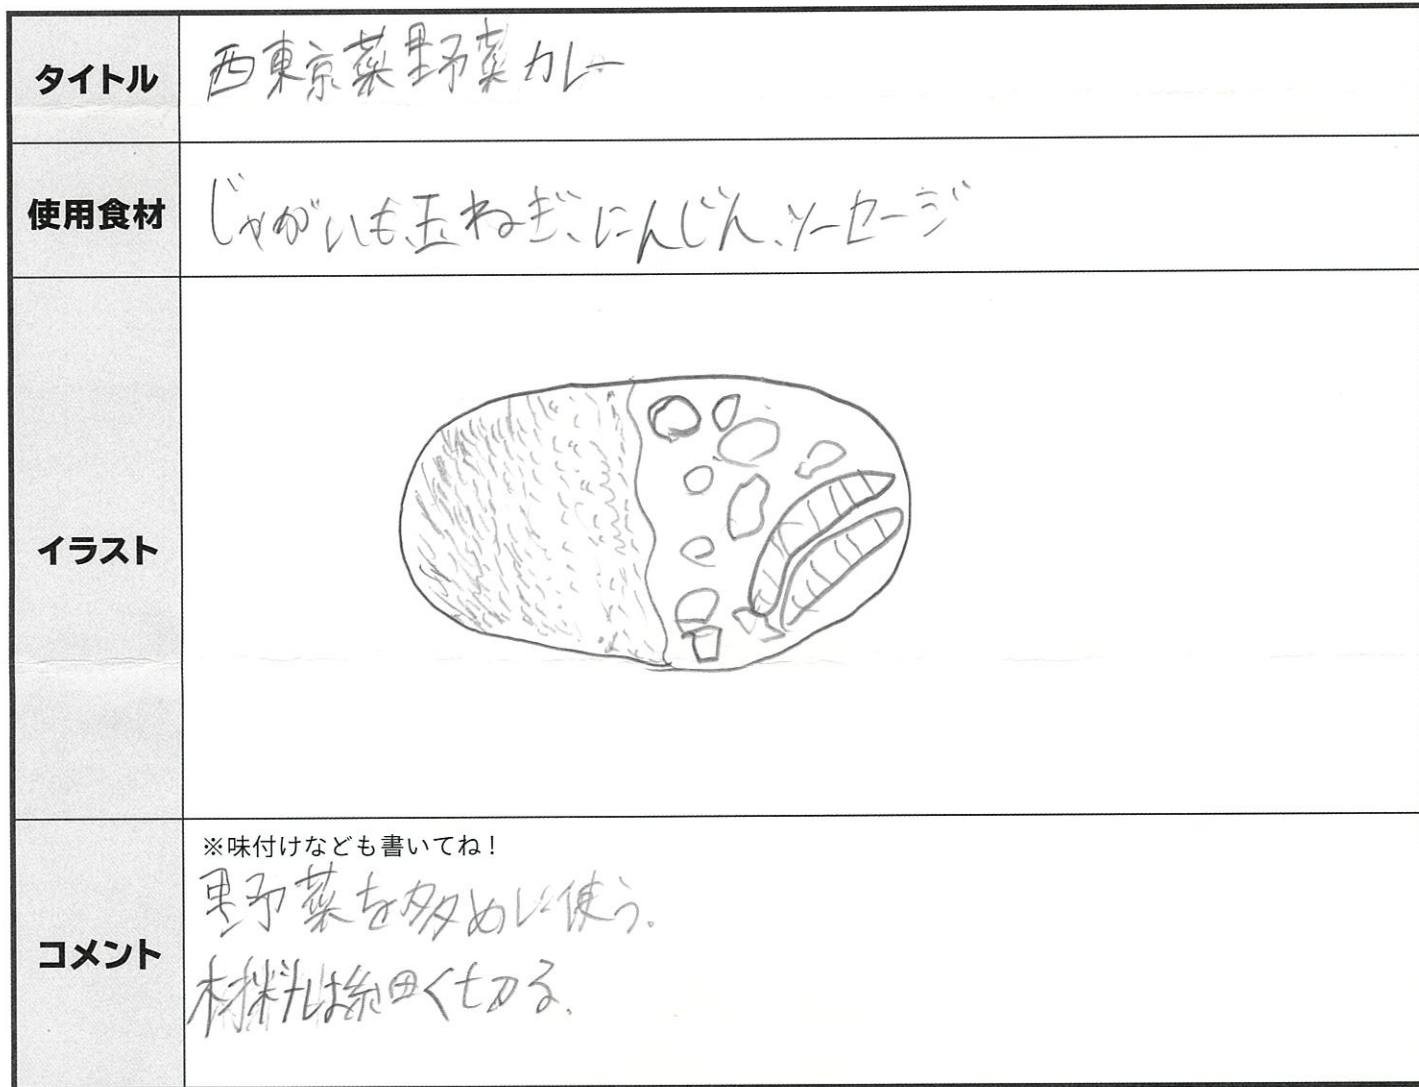 タイトル
西東京菜野菜カレー
使用食材
じゃがいも、玉ねぎ、にんじん、ソーセージ
イラスト
コメント
※味付けなども書いてね!
野菜を多めに使う。
材料は細く切る。